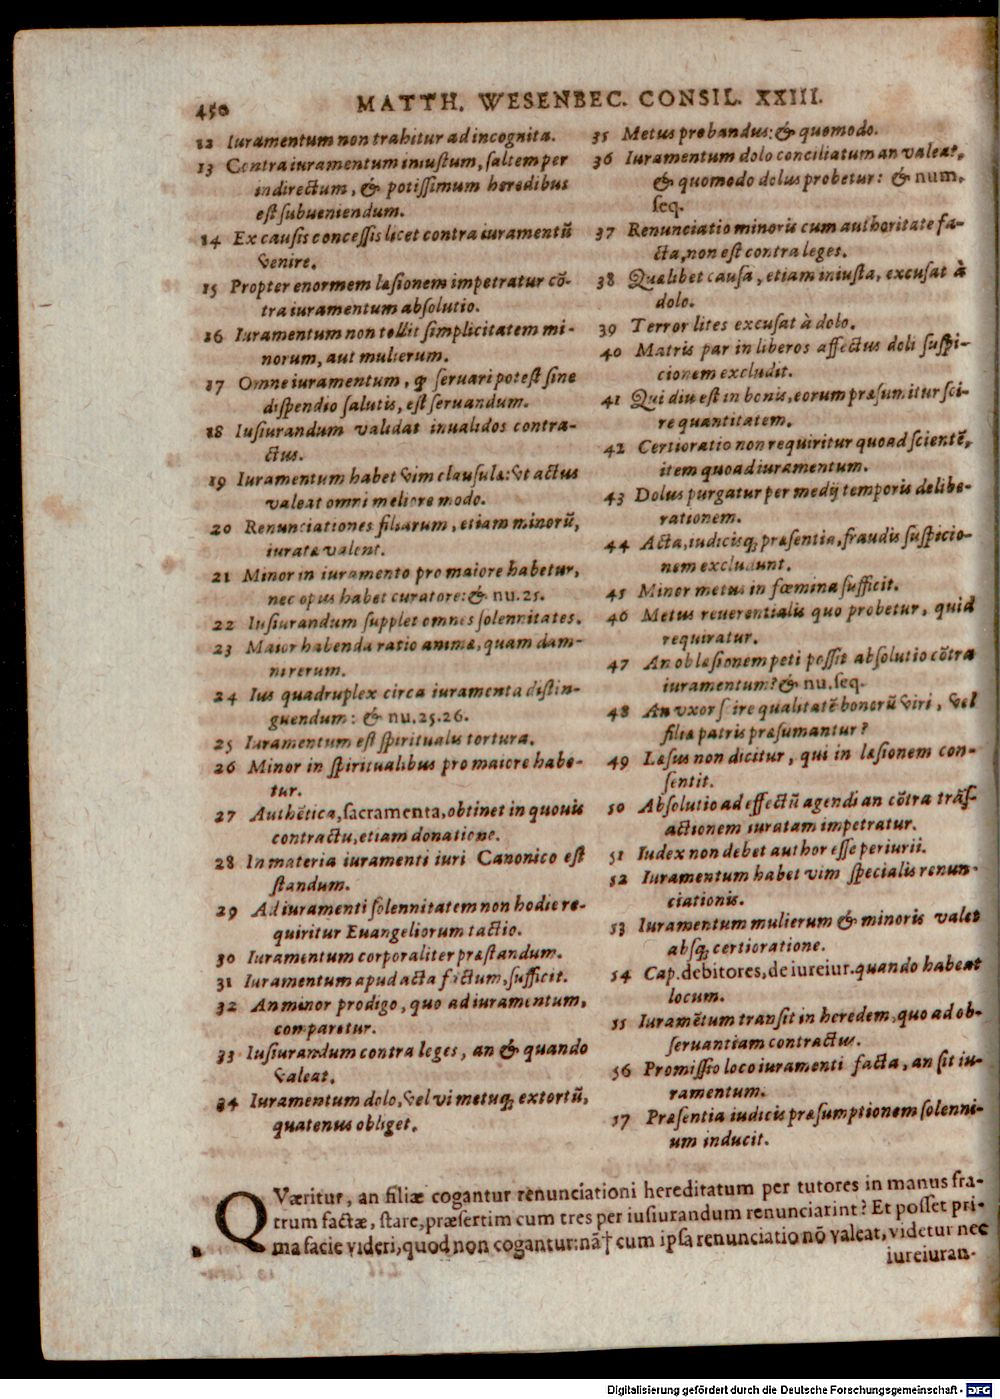 450
MATTH. WESENBEC. CONSIL. XXIII.
12 Iuramentum non trahitur ad incognita.
13 Contra iuramentum iniustum, saltem per
indirectum, & potissimum heredibus
est subueniendum.
14 Ex causis concessis licet contra iuramentū
venire.
15 Propter enormem læsionem impetratur cō-
tra iuramentum absolutio.
16 Iuramentum non tollit simplicitatem mi-
norum, aut mulierum.
17 Omne iuramentum, ꝙ seruari potest sine
dispendio salutis, est seruandum.
18 Iusiurandum validat inualidos contra-
ctus.
19 Iuramentum habet vim clausulæ: vt actus
valeat omni meliore modo.
20 Renunciationes filiarum, etiam minorū,
iuratæ valent.
21 Minor in iuramento pro maiore habetur,
nec opus habet curatore: & nu. 25.
22 Iusiurandum supplet omnes solennitates.
23 Maior habenda ratio animæ, quam dam-
ni rerum.
24 Ius quadruplex circa iuramenta distin-
guendum: & nu. 25. 26.
25 Iuramentum est spiritualis tortura.
26 Minor in spiritualibus pro maiore habe-
tur.
27 Authētica, sacramenta, obtinet in quouis
contractu, etiam donatione.
28 In materia iuramenti iuri Canonico est
standum.
29 Ad iuramenti solennitatem non hodie re-
quiritur Euangeliorum tactio.
30 Iuramentum corporaliter præstandum.
31 Iuramentum apud acta factum, sufficit.
32 An minor prodigo, quo ad iuramentum,
comparetur.
33 Iusiurandum contra leges, an & quando
valeat.
34 Iuramentum dolo, vel vi metuq; extortū,
quatenus obliget.
35 Metus probandus: & quomodo.
36 Iuramentum dolo conciliatum an valeat,
& quomodo dolus probetur: & num.
seq.
37 Renunciatio minoris cum authoritate fa-
cta, non est contra leges.
38 Qualibet causa, etiam iniusta, excusat à
dolo.
39 Terror lites excusat à dolo.
40 Matris par in liberos affectus doli suspi-
cionem excludit.
41 Qui diu est in bonis, eorum præsumitur sci-
re quantitatem.
42 Certioratio non requiritur quoad scientē,
item quoad iuramentum.
43 Dolus purgatur per medij temporis delibe-
rationem.
44 Acta, iudicisq; præsentia, fraudis suspicio-
nem excludunt.
45 Minor metus in fœmina sufficit.
46 Metus reuerentialis quo probetur, quid
requiratur.
47 An ob læsionem peti possit absolutio cōtra
iuramentum? & nu. seq.
48 An vxor scire qualitatē bonorū viri, vel
filia patris præsumantur?
49 Læsus non dicitur, qui in læsionem con-
sentit.
50 Absolutio ad effectū agendi an cōtra trās-
actionem iuratam impetratur.
51 Iudex non debet author esse periurii.
52 Iuramentum habet vim specialis renun-
ciationis.
53 Iuramentum mulierum & minoris valet
absq; certioratione.
54 Cap. debitores, de iureiur. quando habeat
locum.
55 Iuramētum transit in heredem, quo ad ob-
seruantiam contractus.
56 Promissio loco iuramenti facta, an sit iu-
ramentum.
57 Præsentia iudicis præsumptionem solenni-
um inducit.
QVæritur, an filiæ cogantur renunciationi hereditatum per tutores in manus fra-
trum factæ, stare, præsertim cum tres per iusiurandum renunciarint? Et posset pri-
ma facie videri, quod non cogantur: nā† cum ipsa renunciatio nō valeat, videtur nec
iureiuran-
Digitalisierung gefördert durch die Deutsche Forschungsgemeinschaft - DFG